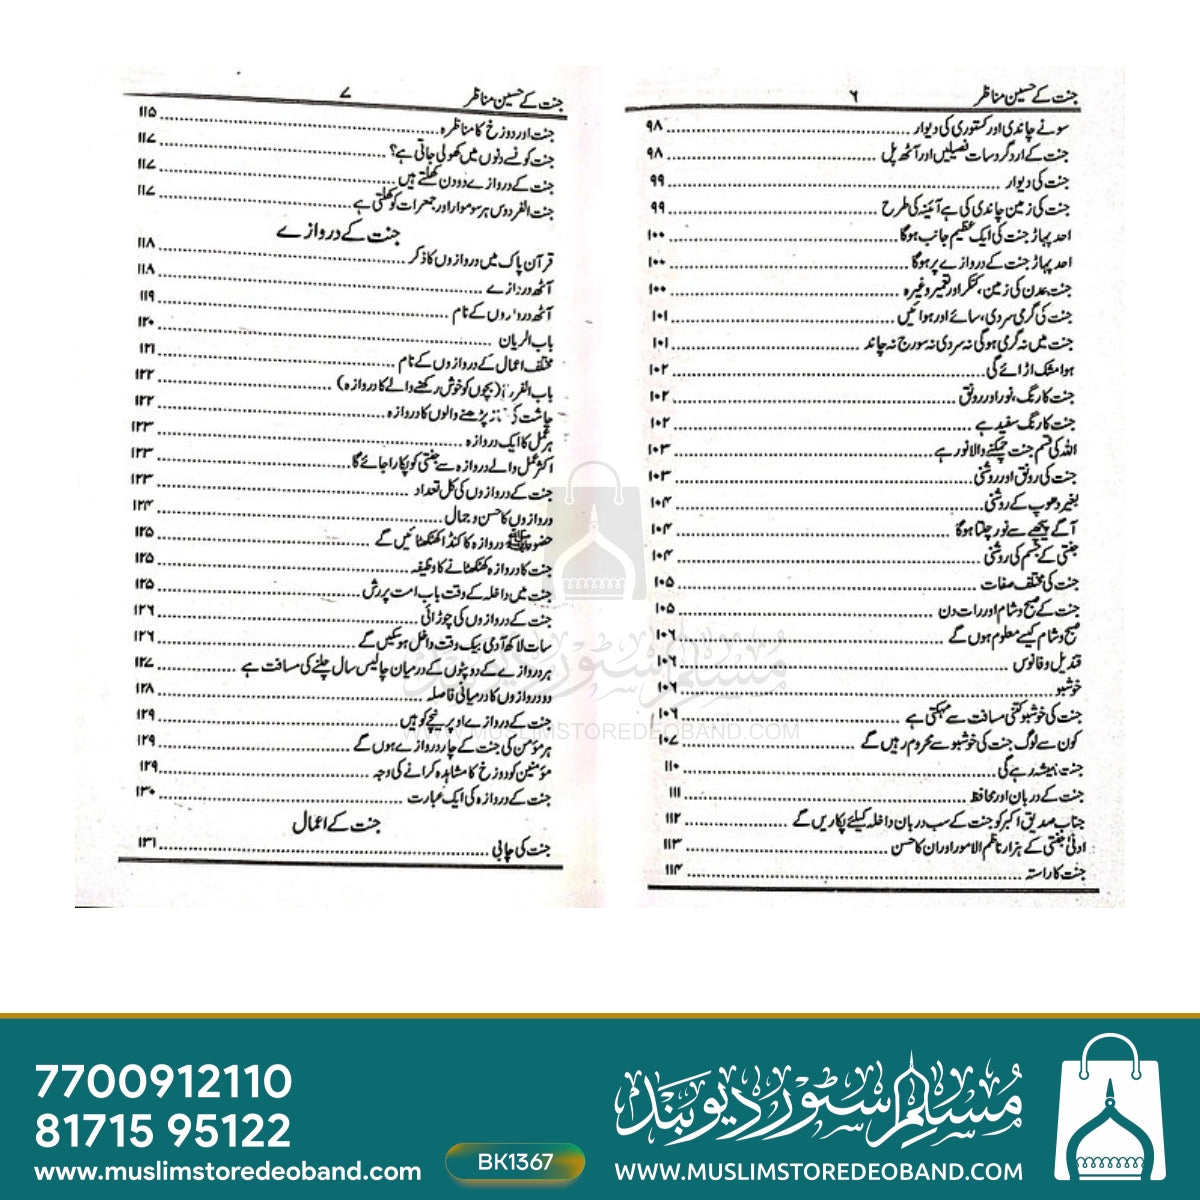 جنت کے حسین مناظر ۶
سونے چاندی اور کستوری کی دیوار ۹۸
جنت کے ارد گرد سات فصیلیں اور آٹھ پل ۹۸
جنت کی دیوار ۹۹
جنت کی زمین چاندی کی ہے آئینہ کی طرح ۹۹
احد پہاڑ جنت کی ایک عظیم جانب ہوگا ۱۰۰
احد پہاڑ جنت کے دروازے پر ہوگا ۱۰۰
جنت عدن کی زمین، کنکر اور تعمیر وغیرہ ۱۰۰
جنت کی گرمی سردی، سائے اور ہوائیں ۱۰۱
جنت میں نہ گرمی ہوگی نہ سردی نہ سورج نہ چاند ۱۰۱
ہوا مشک اڑائے گی ۱۰۲
جنت کا رنگ، نور اور رونق ۱۰۲
جنت کا رنگ سفید ہے ۱۰۲
اللہ کی قسم جنت چمکنے والا نور ہے ۱۰۳
جنت کی رونق اور روشنی ۱۰۳
بغیر دھوپ کے روشنی ۱۰۴
آگے پیچھے سے نور چلتا ہوگا ۱۰۴
جنتی کے جسم کی روشنی ۱۰۴
جنت کی مختلف صفات ۱۰۵
جنت کے صبح و شام اور رات دن ۱۰۵
صبح و شام کیسے معلوم ہوں گے ۱۰۶
قندیل و فانوس ۱۰۶
خوشبو ۱۰۶
جنت کی خوشبو کتنی مسافت سے مہکتی ہے ۱۰۶
کون سے لوگ جنت کی خوشبو سے محروم رہیں گے ۱۰۷
جنت ہمیشہ رہے گی ۱۱۰
جنت کے دربان اور محافظ ۱۱۱
جناب صدیق اکبر کو جنت کے سب دربان داخلہ کیلئے پکاریں گے ۱۱۲
ادنیٰ جنتی کے ہزار ناظم الامور اور ان کا حسن ۱۱۳
جنت کا راستہ ۱۱۴
جنت کے حسین مناظر ۷
جنت اور دوزخ کا مناظرہ ۱۱۵
جنت کونسے دنوں میں کھولی جاتی ہے؟ ۱۱۷
جنت کے دروازے دو دن کھلتے ہیں ۱۱۷
جنت الفردوس ہر سوموار اور جمعرات کو کھلتی ہے ۱۱۷
جنت کے دروازے
قرآن پاک میں دروازوں کا ذکر ۱۱۸
آٹھ دروازے ۱۱۸
آٹھ دروازوں کے نام ۱۱۹
باب الریان ۱۲۰
مختلف اعمال کے دروازوں کے نام ۱۲۱
باب الفرح (بچوں کو خوش رکھنے والے کا دروازہ) ۱۲۲
چاشت کی نماز پڑھنے والوں کا دروازہ ۱۲۲
ہر عمل کا ایک دروازہ ۱۲۳
اکثر عمل والے دروازہ سے جنتی کو پکارا جائے گا ۱۲۳
جنت کے دروازوں کی کل تعداد ۱۲۳
دروازوں کا حسن و جمال ۱۲۴
حضور ﷺ دروازہ کا کنڈا کھٹکھٹائیں گے ۱۲۵
جنت کا دروازہ کھٹکھٹانے کا وظیفہ ۱۲۵
جنت میں داخلہ کے وقت باب امت پر رش ۱۲۵
جنت کے دروازوں کی چوڑائی ۱۲۶
سات لاکھ آدمی بیک وقت داخل ہو سکیں گے ۱۲۶
ہر دروازے کے دو پٹوں کے درمیان چالیس سال چلنے کی مسافت ہے ۱۲۷
دو دروازوں کا درمیانی فاصلہ ۱۲۸
جنت کے دروازے اوپر نیچے کو ہیں ۱۲۹
ہر مؤمن کی جنت کے چار دروازے ہوں گے ۱۲۹
مؤمنین کو دوزخ کا مشاہدہ کرانے کی وجہ ۱۲۹
جنت کے دروازہ کی ایک عبارت ۱۳۰
جنت کے اعمال
جنت کی چابی ۱۳۱
مسلم سٹور دیوبند
WWW.MUSLIMSTOREDEOBAND.COM
7700912110
81715 95122
www.muslimstoredeoband.com
BK1367
مسلم سٹور دیوبند
WWW.MUSLIMSTOREDEOBAND.COM